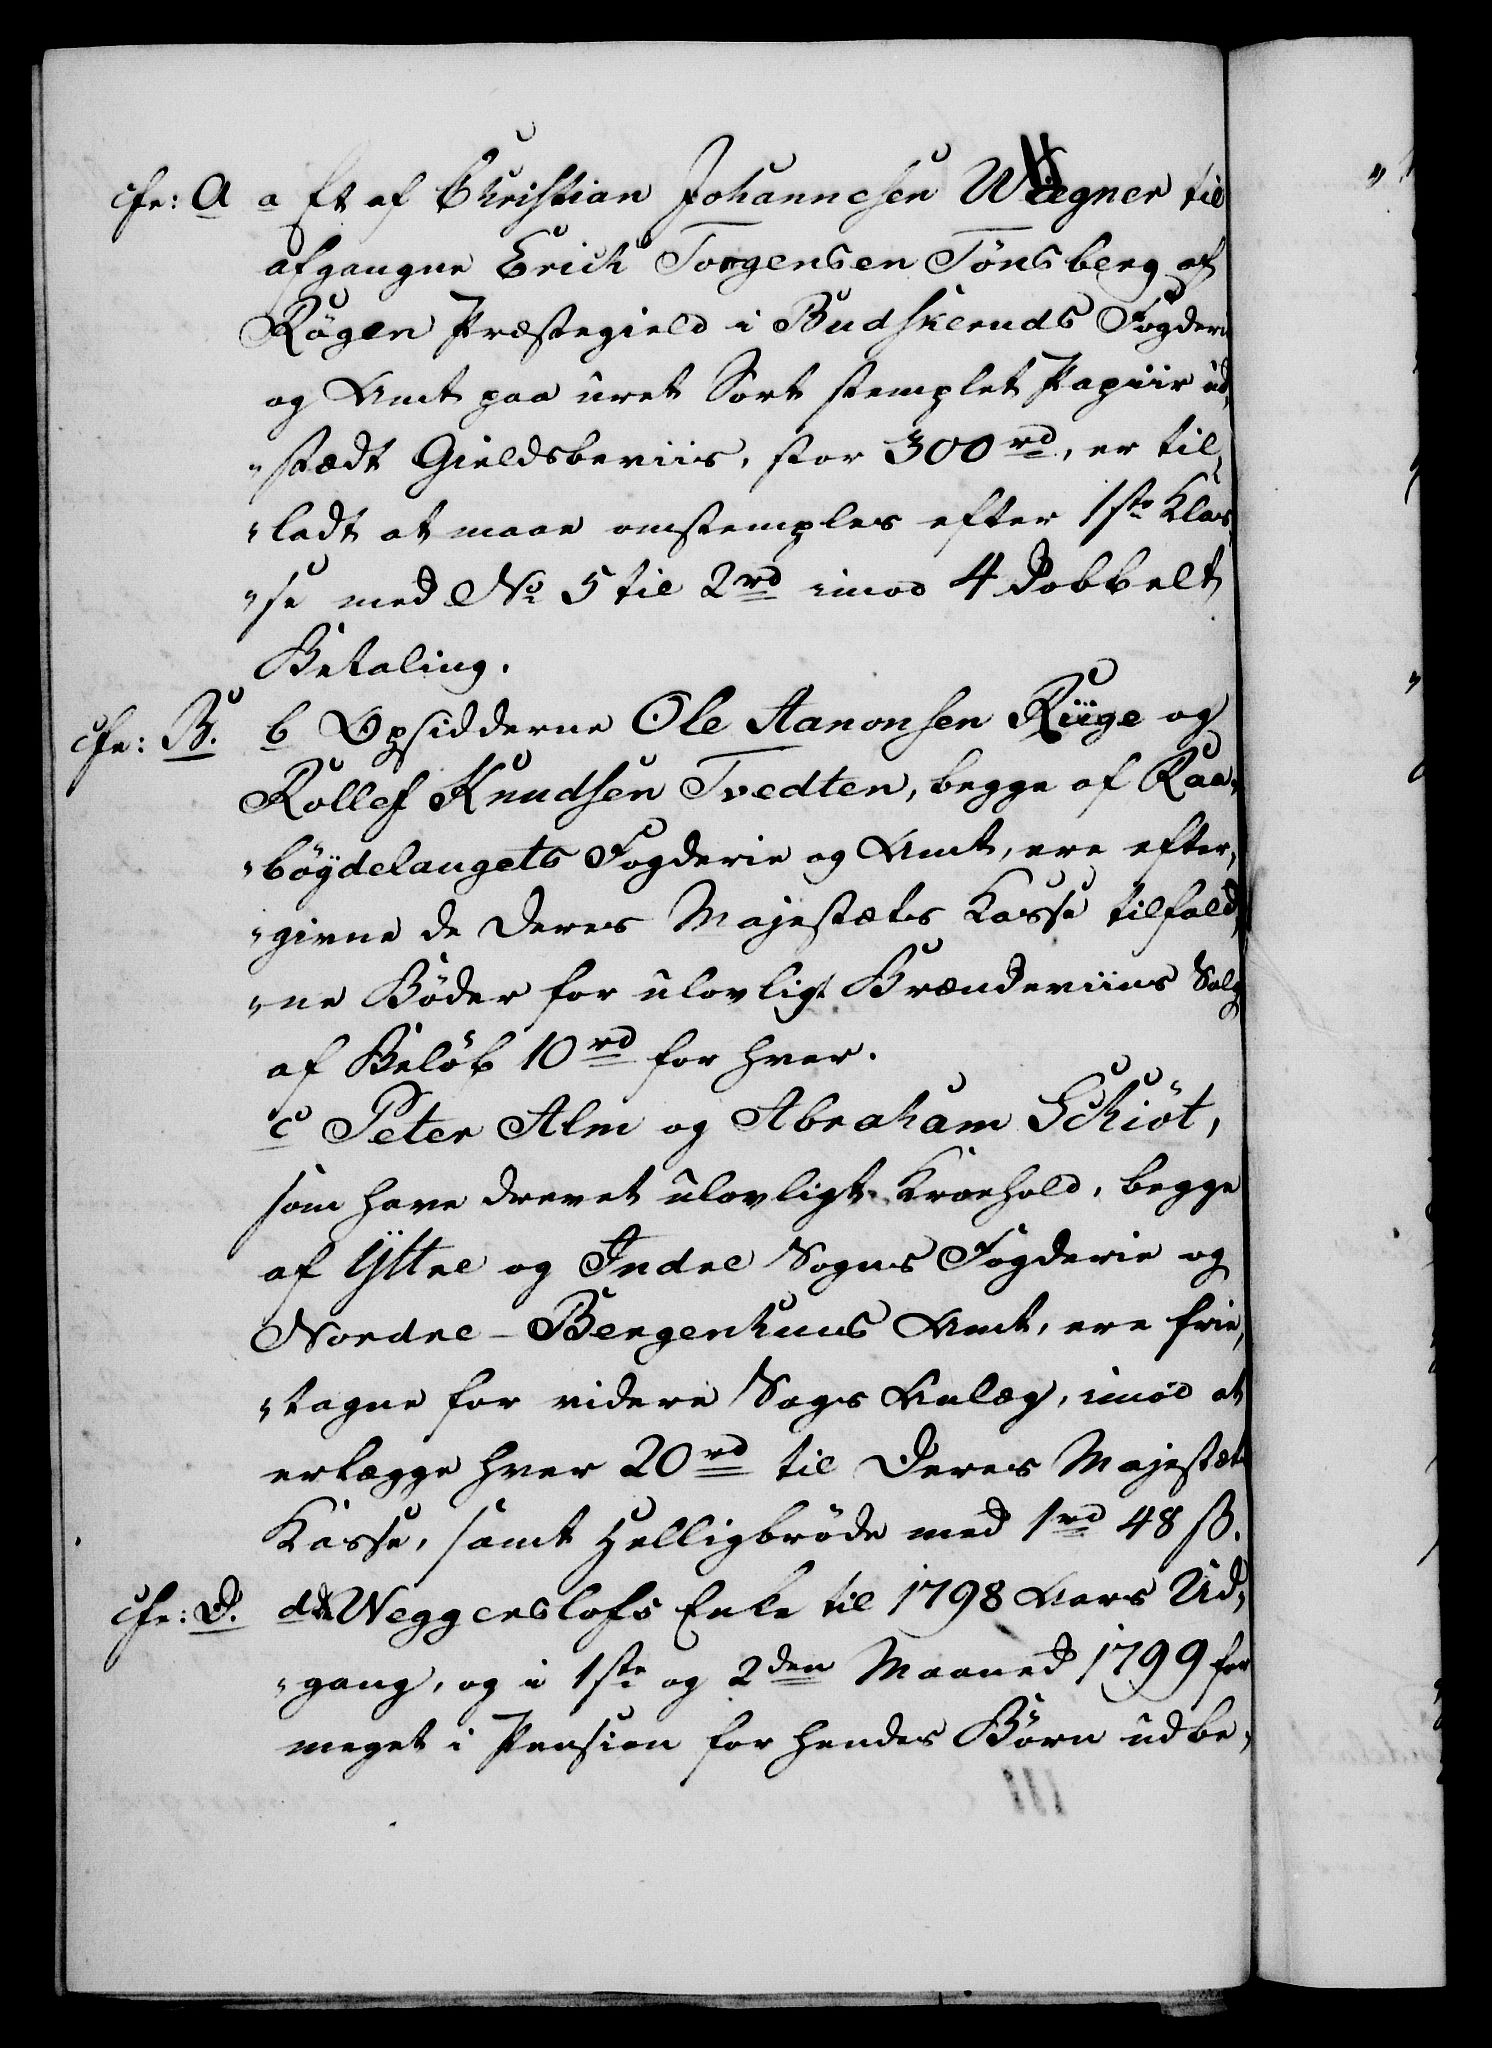 cfr: A a Et af Christian Johannesen Wægner til
afgangne Erich Torgensen Tönsberg af
Rögen Præstegield i Budskeruds Fogderie
og Amt paa uret Sort stemplet Papiir ud„
„stædt Gieldsbeviis, stor 300 rd, er til„
„ladt at maae omstemples efter 1ste Klas„
„se med No 5 til 2 rd imod 4 Dobbelt
Betaling.
cfr: B. b Opsidderne Ole Aanonsen Riige og
Rollef Knudsen Tvedten, begge af Raa„
„böydelaugets Fogderie og Amt, ere efter„
„givne de Deres Majestæts Kasse tilfald„
„ne Bøder for ulovligt Brændeviins Salg
af Beløb 10 rd for hver.
c Peter Alm og Abraham Schiöt,
som have drevet ulovligt Kroehold, begge
af Yttre og Indre Sogns Fogderie og
Nordre-Bergenhuus Amt, ere frie„
„tagne for videre Sags Anlæg, imod at
erlægge hver 20 rd til Deres Majestæts
Kasse, samt Helligbrøde med 1 rd 48 ß.
cfr: D. d Weggerslofs Enke til 1798 Aars Ud„
„gang, og i 1ste og 2den Maaned 1799 for
meget i Pension for hendes Børn udbe„